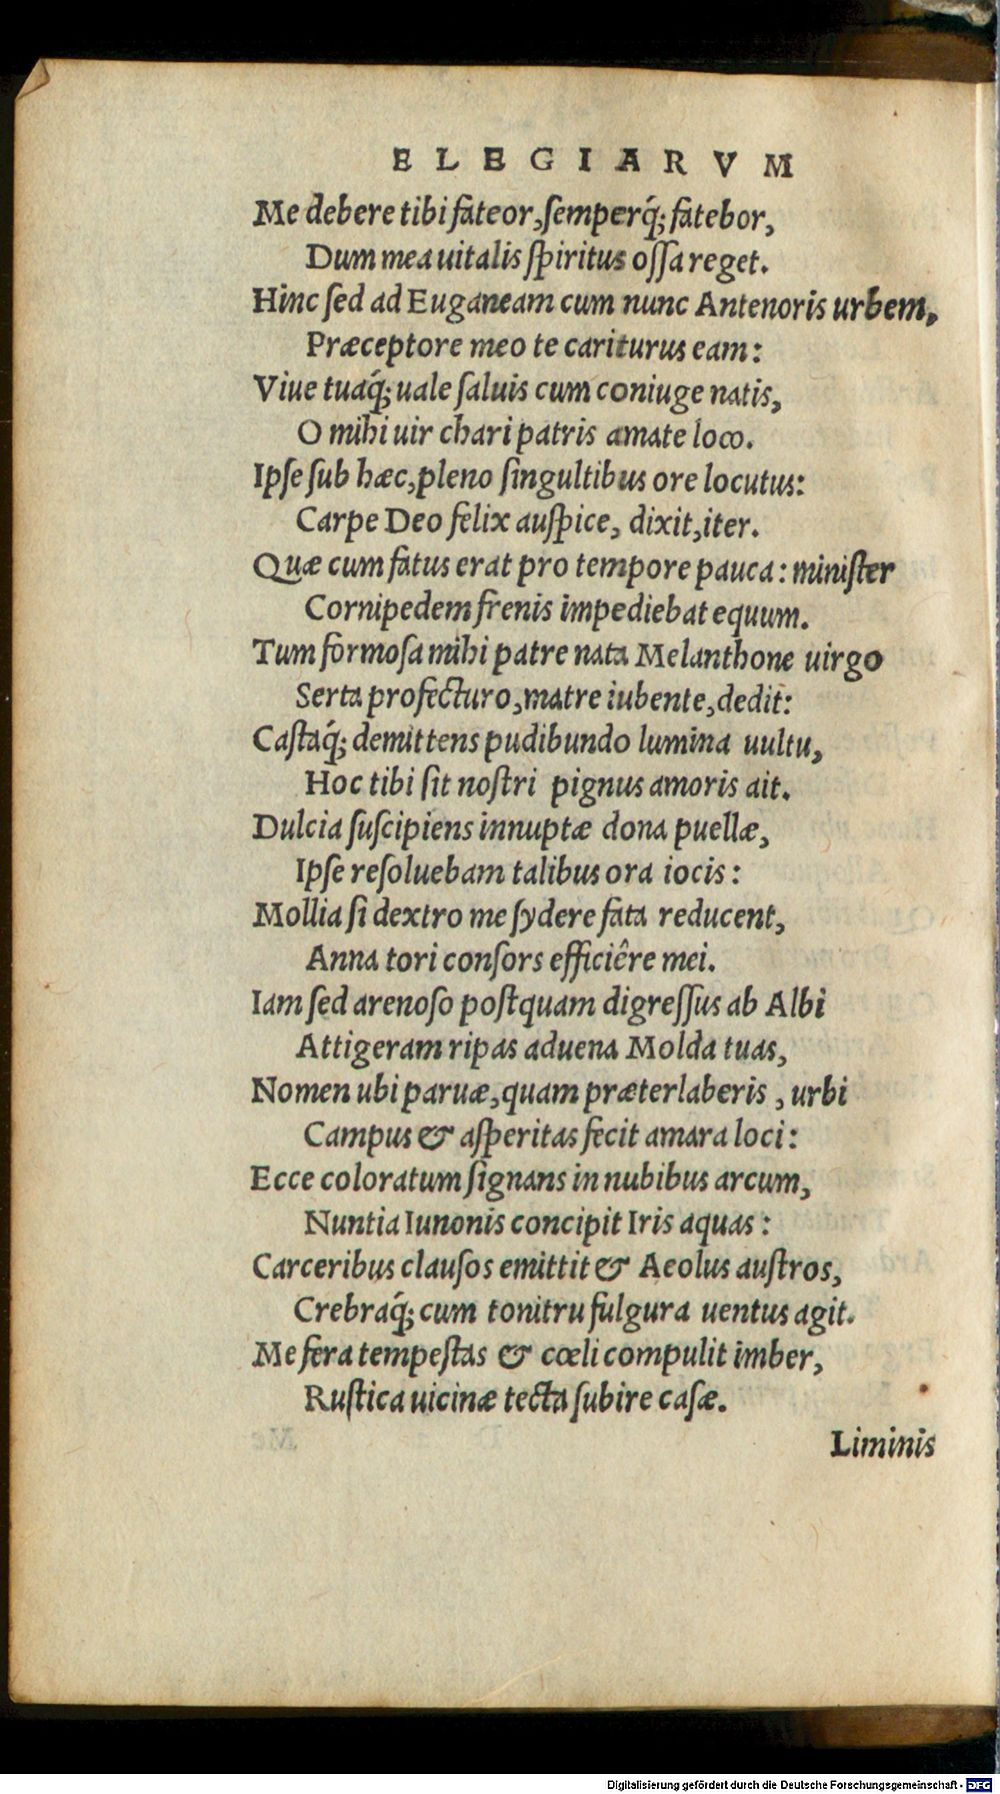 ELEGIARVM
Me debere tibi fateor, ſemperq́; fatebor,
Dum mea uitalis ſpiritus oſſa reget.
Hinc ſed ad Euganeam cum nunc Antenoris urbem,
Præceptore meo te cariturus eam:
Viue tuaq́; uale ſaluis cum coniuge natis,
O mihi uir chari patris amate loco.
Ipſe ſub hæc, pleno ſingultibus ore locutus:
Carpe Deo felix auſpice, dixit, iter.
Quæ cum fatus erat pro tempore pauca: miniſter
Cornipedem frenis impediebat equum.
Tum formoſa mihi patre nata Melanthone uirgo
Serta profecturo, matre iubente, dedit:
Caſtaq́; demittens pudibundo lumina uultu,
Hoc tibi ſit noſtri pignus amoris ait.
Dulcia ſuſcipiens innuptæ dona puellæ,
Ipſe reſoluebam talibus ora iocis:
Mollia ſi dextro me ſydere fata reducent,
Anna tori conſors efficiêre mei.
Iam ſed arenoſo poſtquam digreſſus ab Albi
Attigeram ripas aduena Molda tuas,
Nomen ubi paruæ, quam præterlaberis, urbi
Campus & aſperitas fecit amara loci:
Ecce coloratum ſignans in nubibus arcum,
Nuntia Iunonis concipit Iris aquas:
Carceribus clauſos emittit & Aeolus auſtros,
Crebraq́; cum tonitru fulgura uentus agit.
Me fera tempeſtas & cœli compulit imber,
Ruſtica uicinæ tecta ſubire caſæ.
Liminis
Digitalisierung gefördert durch die Deutsche Forschungsgemeinschaft - DFG